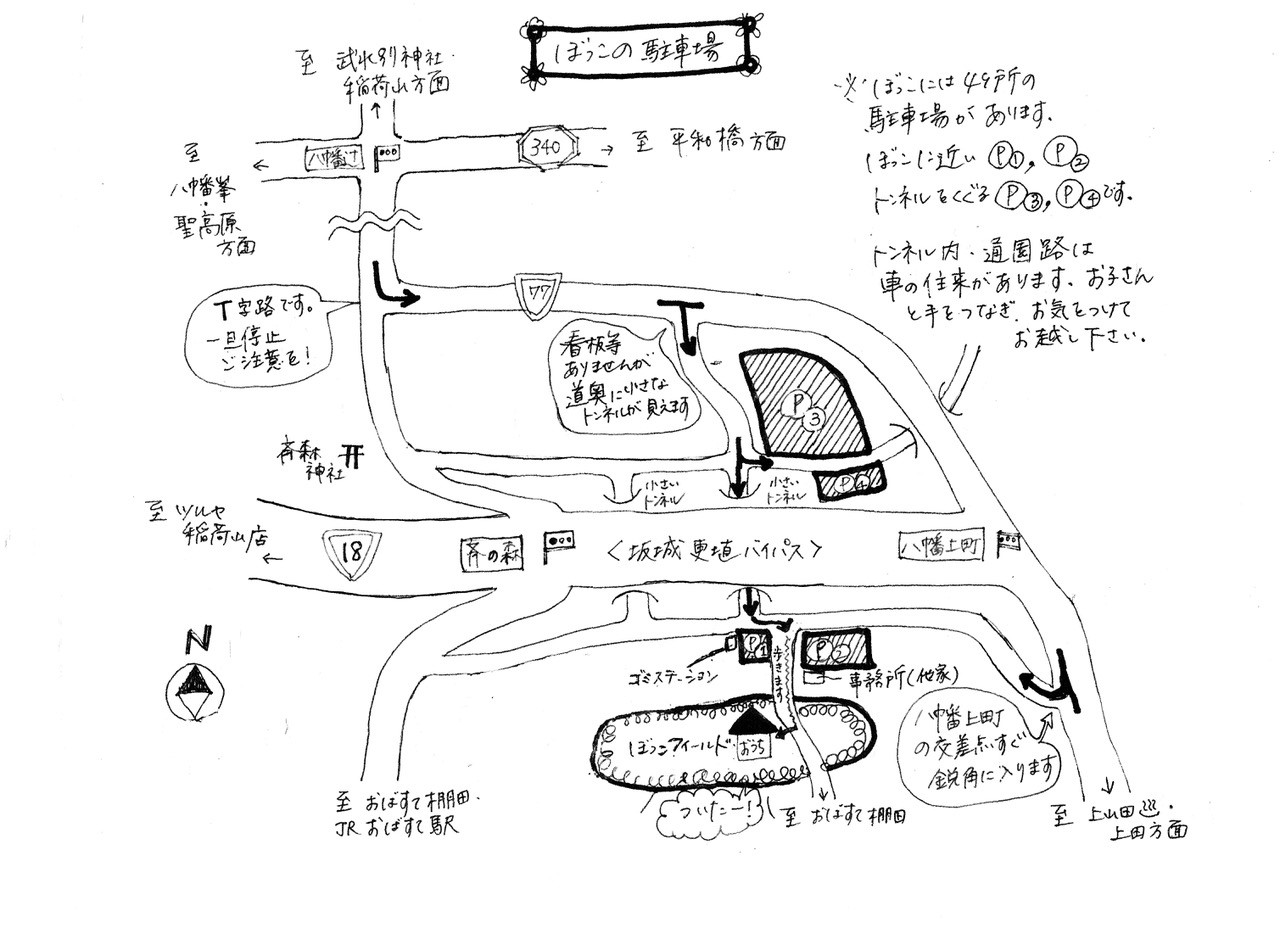 ぼっこの駐車場
至 武水別神社・
稲荷山方面
至
八幡峯
・
聖高原
方面
八幡辻
340
至 平和橋方面
※ぼっこには4ヶ所の
駐車場があります。
ぼっこに近い P1, P2
トンネルをくぐる P3, P4です。
トンネル内・通園路は
車の往来があります。お子さん
と手をつなぎ、お気をつけて
お越し下さい。
T字路です。
一旦停止
ご注意を!
77
看板等
ありませんが
道奥に小さな
トンネルが見えます
P3
斉森
神社
小さい
トンネル
小さい
トンネル
P4
至 ツルヤ
稲荷山店
18
斉の森
<坂城更埴バイパス>
八幡上町
N
P1
P2
歩きます
ゴミステーション
事務所(他家)
ぼっこフィールド
おうち
八幡上町
の交差点すぐ
鋭角に入ります
至 おばすて棚田・
JR おばすて駅
ついたー!
至 おばすて棚田
至 上山田・
上田方面